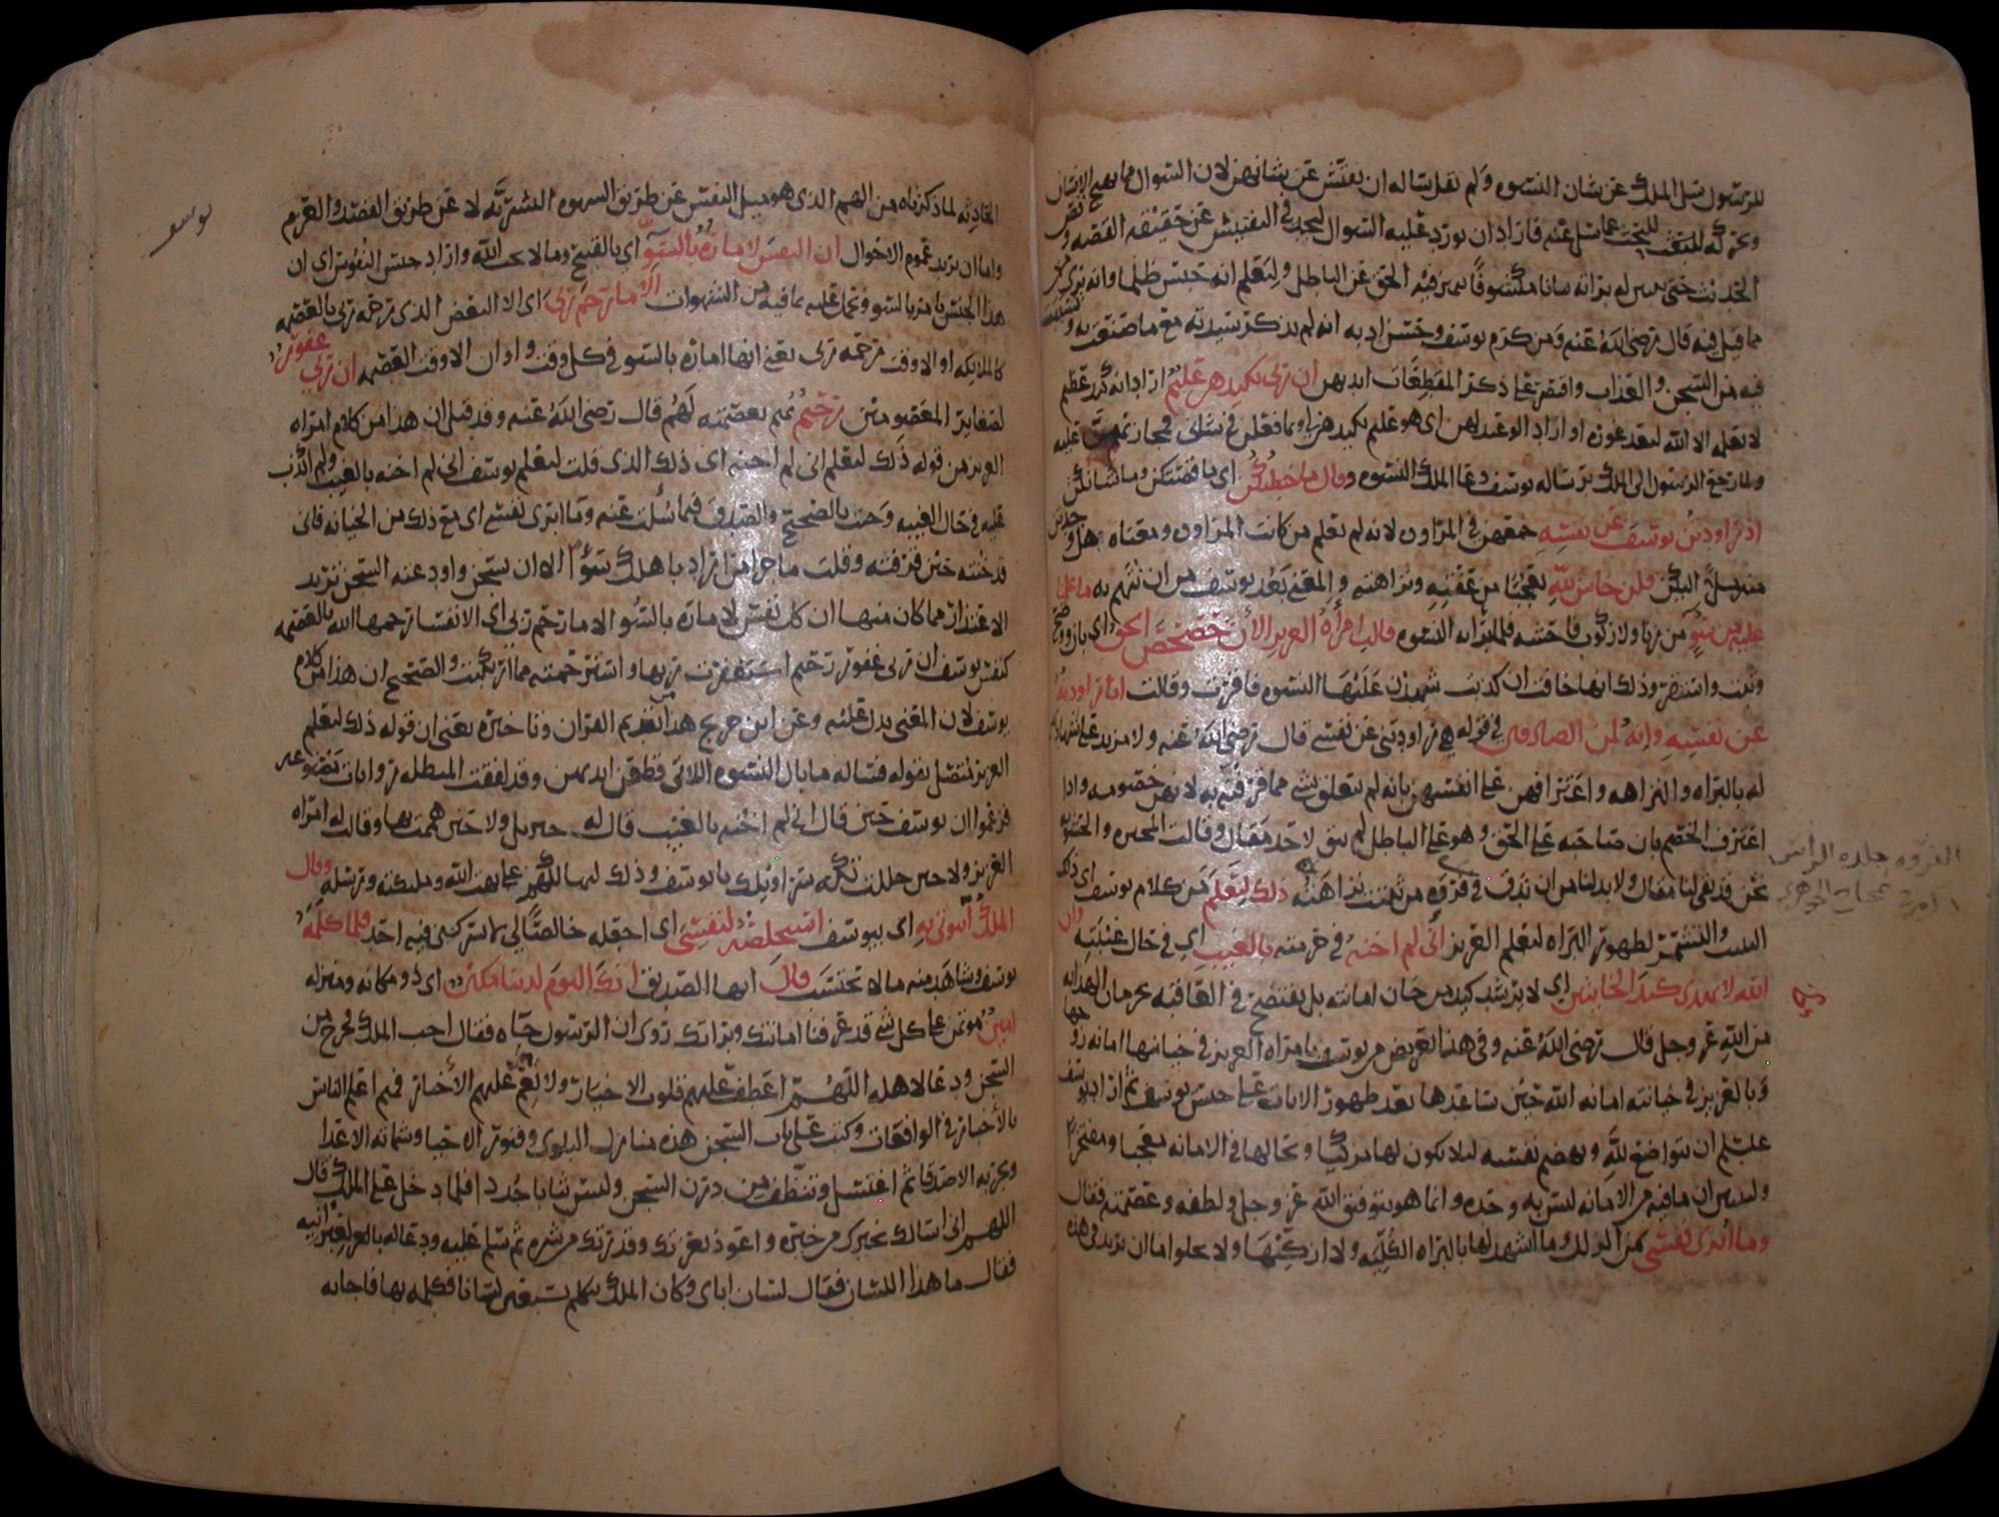 للرسول سل الملك عن شان النسوه ولم يقل ساله ان يفتش عن شانهن لان السوال مما يهيج الانسان
ويحركه للبحث عما سئل عنه فاراد ان يورد عليه السوال ليجد في التفتيش عن حقيقه القصه وفص
الحديث حتى يتبين له براته بيانا مكشوفا يميز فيه الحق عن الباطل وليعلم انه حبس ظلما وانه بري
مما قيل فيه قال رضي الله عنه ومن كرم يوسف وحسن ادبه انه لم يذكر سيدته مع ما صنعت به
فيه من السجن والعذاب واقتصر على ذكر المقطعات ايديهن ان ربي بكيدهن عليم اراد انه كيد عظيم
لا يعلمه الا الله لبعد غوره او اراد الوعيد لهن اي هو عليم بكيدهن
ولما رجع الرسول الى الملك برساله يوسف دعا الملك النسوه وقال ما خطبكن اي ما قصتكن وما شانكن
اذ راودتن يوسف عن نفسه جمعهن في المراوده لانه لم يعلم من كانت المراوده ومعناه هل وجدتن
منه ميلا اليكن قلن حاش لله تعجبا من عفته ونزاهته والمعنى بعد يوسف من ان نتهم به ما علمنا
عليه من سو من زنا ولا ركوب فاحشه فلما براته النسوه قالت امراة العزيز الأن حصحص الحق اي بان ووضح
وثبت واستقر وذلك انها خافت ان كذبت شهدن عليها النسوه فاقرت وقالت انا راودته
عن نفسه وانه لمن الصادقين في قوله هي راودتني عن نفسي قال رضي الله عنه ولا مزيد على شهادتهن
له بالبراه والنزاهه واعترافهن على انفسهن بانه لم يتعلق بشي مما قرفنه به لانهن خصومه واذا
اعترف الخصم بان صاحبه على الحق وهو على الباطل لم يبق لاحد مقال وقالت المجبره والحشويه
نحن قد بقي لنا مقال ولا بد لنا من ان ندق في فروه من ثبتت نزاهته ذلك ليعلم من كلام يوسف اي ذلك
التثبت والتشمر لظهور البراه ليعلم العزيز اني لم اخنه في حرمته بالغيب اي في حال غيبته وان
الله لا يهدي كيد الخاينين اي لا يرشد كيد من خان امانته بل يفتضح في العاقبه بحرمان الهدايه
من الله عز وجل قال رضي الله عنه وفي هذا تعريض من يوسف بامراه العزيز في خيانتها امانه زوجها
وبالعزيز في خيانته امانه الله حين ساعدها بعد ظهور الايات على حبس يوسف ثم اراد يوسف
عليلم ان يتواضع لله ويهضم نفسه ليلا يكون لها مزكيا وبحالها في الامانه معجبا ومفتخرا
وليبين ان ما فيه من الامانه ليس به وحده وانما هو بتوفيق الله عز وجل ولطفه وعصمته فقال
وما ابرئ نفسي من الزلل وما اشهد لها بالبراه الكليه ولا ازكيها ولا يخلو اما ان يريد في هذه
الفروه جلده الراس
يوسف
الحادثه لما ذكرناه من الهم الذي هو ميل النفس عن طريق الشهوه البشريه لا عن طريق القصد والعزم
واما ان يريد عموم الاحوال ان النفس لامارة بالسو اي بالقبيح وما لا يحب الله واراد جنس النفوس اي ان
هذا الجنس يامر بالسو ويحمل عليه بما فيه من الشهوات الا ما رحم ربي اي الا البعض الذي رحمه ربي بالعصمه
كالملايكه او الا وقت رحمه ربي يعني انها اماره بالسو في كل وقت واوان الا وقت العصمه ان ربي غفور
لصغاير المعصومين رحيم بهم بعصمته لهم قال رضي الله عنه وقد قيل ان هذا من كلام امراه
العزيز من قوله ذلك ليعلم اني لم اخنه اي ذلك الذي قلت ليعلم يوسف اني لم اخنه بالغيب ولم اكذب
عليه في حال الغيبه وجيت بالصحيح والصدق فيما سئلت عنه وما ابرئ نفسي اي مع ذلك من الخيانه فاني
قد خنته حين قرفته وقلت ما جزا من اراد باهلك سؤا الا ان يسجن واودعته السجن تريد
الاعتذار مما كان منها ان كل نفس لاماره بالسو الا ما رحم ربي اي الا نفسا رحمها الله بالعصمه
كنفس يوسف ان ربي غفور رحيم استغفرت ربها واسترحمته مما ارتكبت والصحيح ان هذا من كلام
يوسف لان المعنى يدل عليه وعن ابن جريج هذا من تقديم القران وتاخيره يعني ان قوله ذلك ليعلم
العزيز متصل بقوله فساله ما بال النسوه اللاتي قطعن ايديهن وقد لفقت المبطله روايات مصنوعه
فزعموا ان يوسف حين قال اني لم اخنه بالغيب قال له جبريل ولا حين هممت بها وقالت له امراه
العزيز ولا حين حللت تكه سراويلك يا يوسف وذلك لتهالكهم على بهت الله وملئكته ورسله وقال
الملك ائتوني به اي بيوسف استخلصه لنفسي اي اجعله خالصا لي لا يشركني فيه احد فلما كلمه
يوسف وشاهد منه ما لا يحتسب قال ايها الصديق انك اليوم لدينا مكين اي ذو مكانه ومنزله
امين مؤتمن على كل شي قد عرفنا امانتك وبراتك روي ان الرسول جاه فقال اجب الملك فخرج من
السجن ودعا لاهله اللهم اعطف عليهم قلوب الاخيار ولا تعم عليهم الأخبار فهم اعلم الناس
بالأخبار في الواقعات وكتب على باب السجن هذه منازل البلوى وقبور الاحيا وشماته الاعدا
وتجربه الاصدقا ثم اغتسل وتنظف من درن السجن ولبس ثيابا جددا فلما دخل على الملك قال
اللهم اني اسالك بخيرك من خيره واعوذ بعزتك وقدرتك من شره ثم سلم عليه ودعا له بالعبرانيه
فقال ما هذا اللسان فقال لسان اباي وكان الملك يتكلم بسبعين لسانا فكلمه بها فاجابه